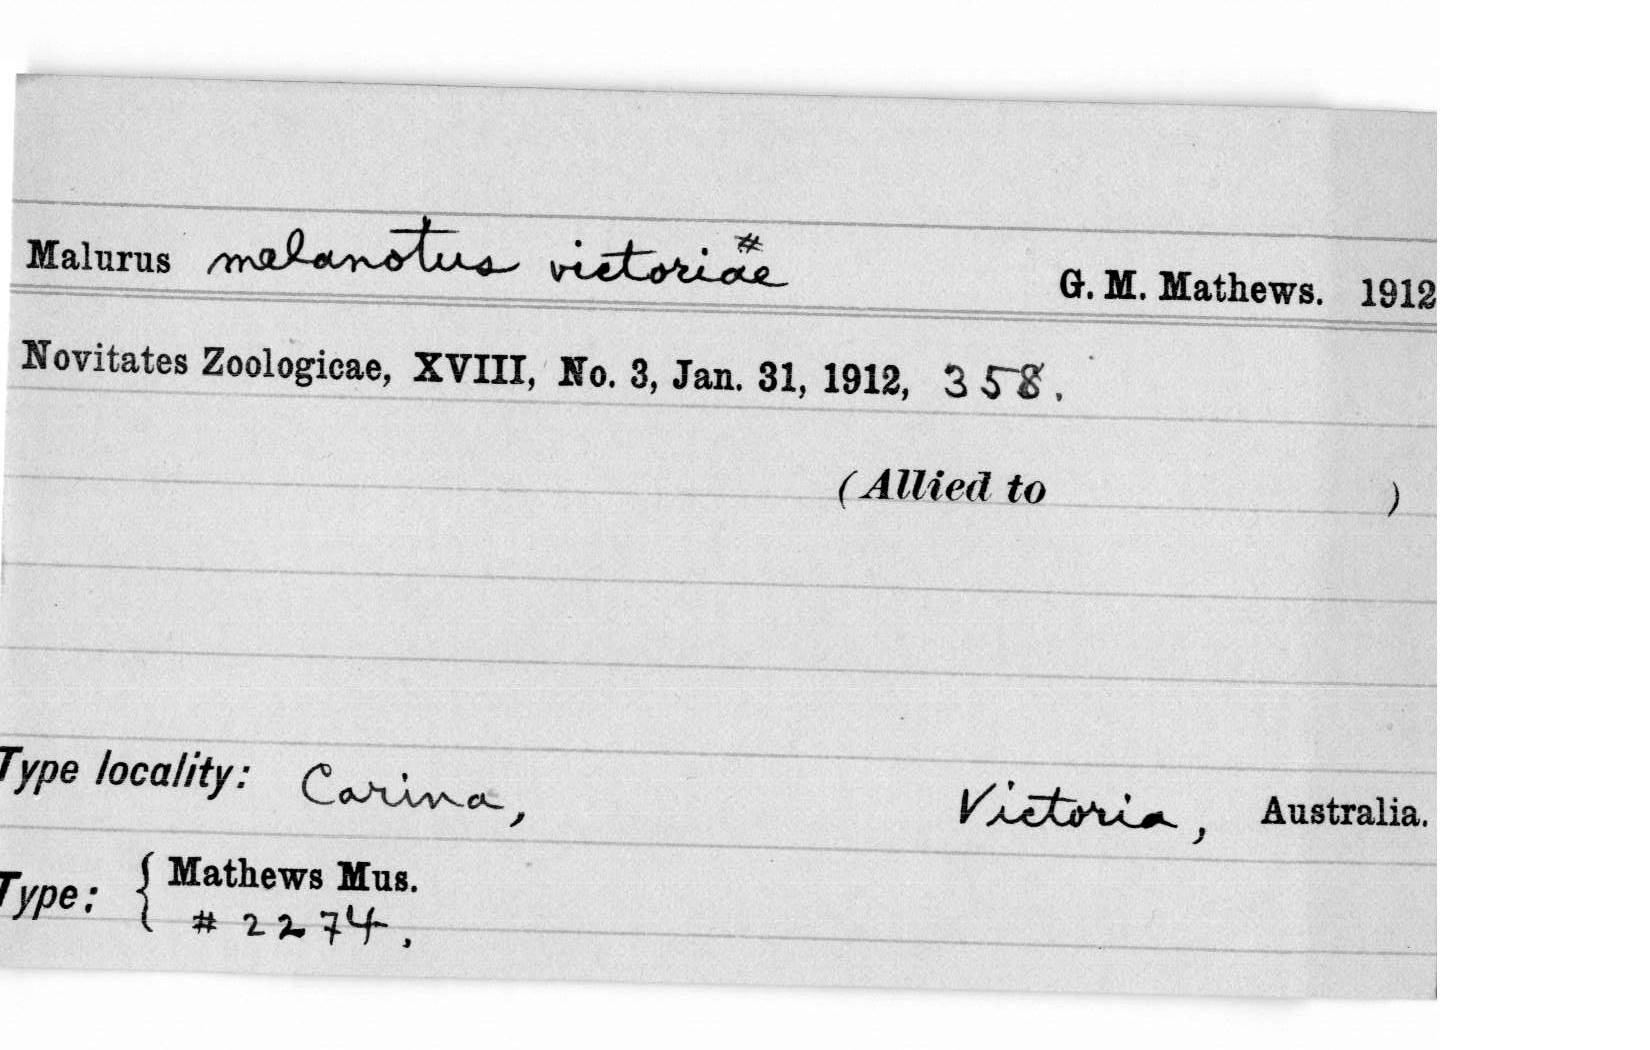 Malurus melanotus victoriae # G. M. Mathews. 1912
Novitates Zoologicae, XVIII, No. 3, Jan. 31, 1912, 358.
(Allied to )
Type locality: Carina, Victoria, Australia.
Type: { Mathews Mus.
# 2274.